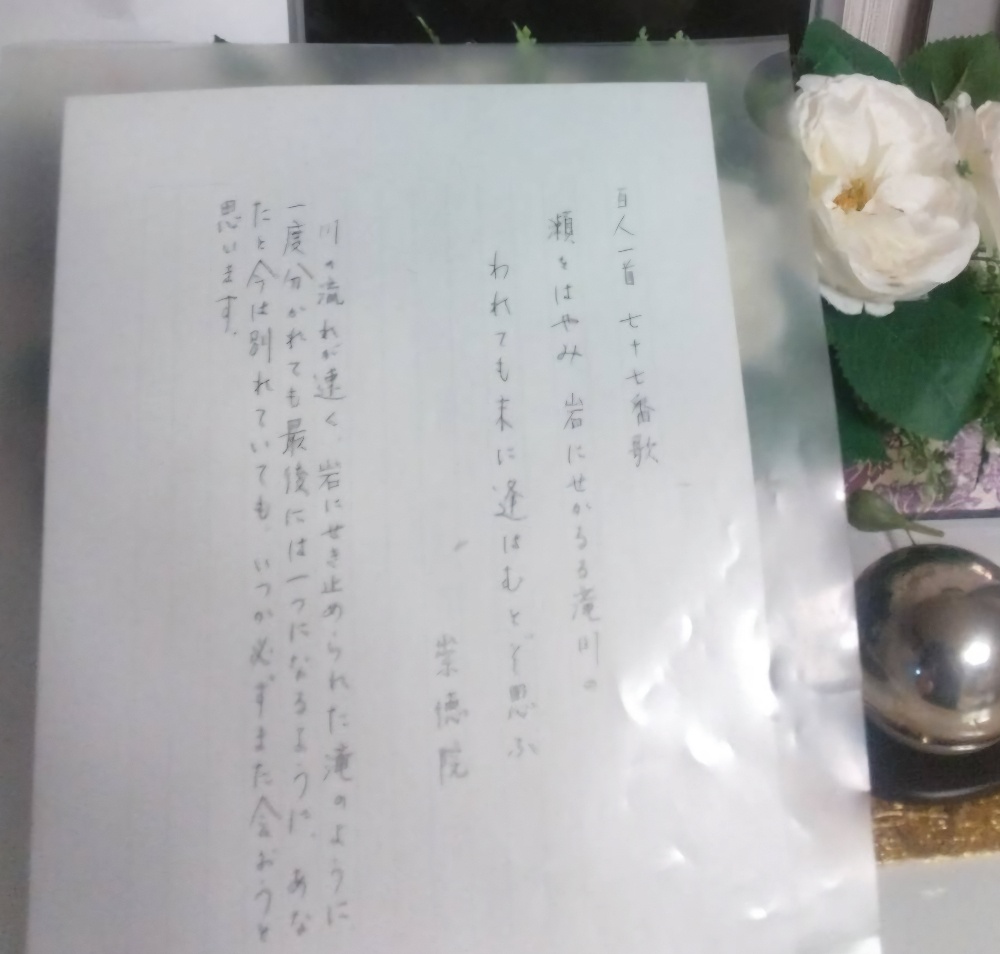 百人一首 七十七番歌
瀬をはやみ 岩にせかるる滝川の
われても末に逢はむとぞ思ふ
崇徳院
川の流れが速く、岩にせき止められた滝のように
一度分かれても最後には一つになるように、あな
たと今は別れていても、いつか必ずまた会おうと
思います。